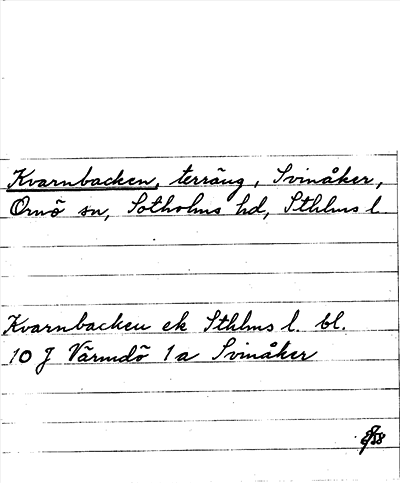 Kvarnbacken, terräng, Svinåker,
Ornö sn, Sotholms hd, Sthlms l
Kvarnbacken ek Sthlms l. bl.
10 J Värmdö 1 a Svinåker